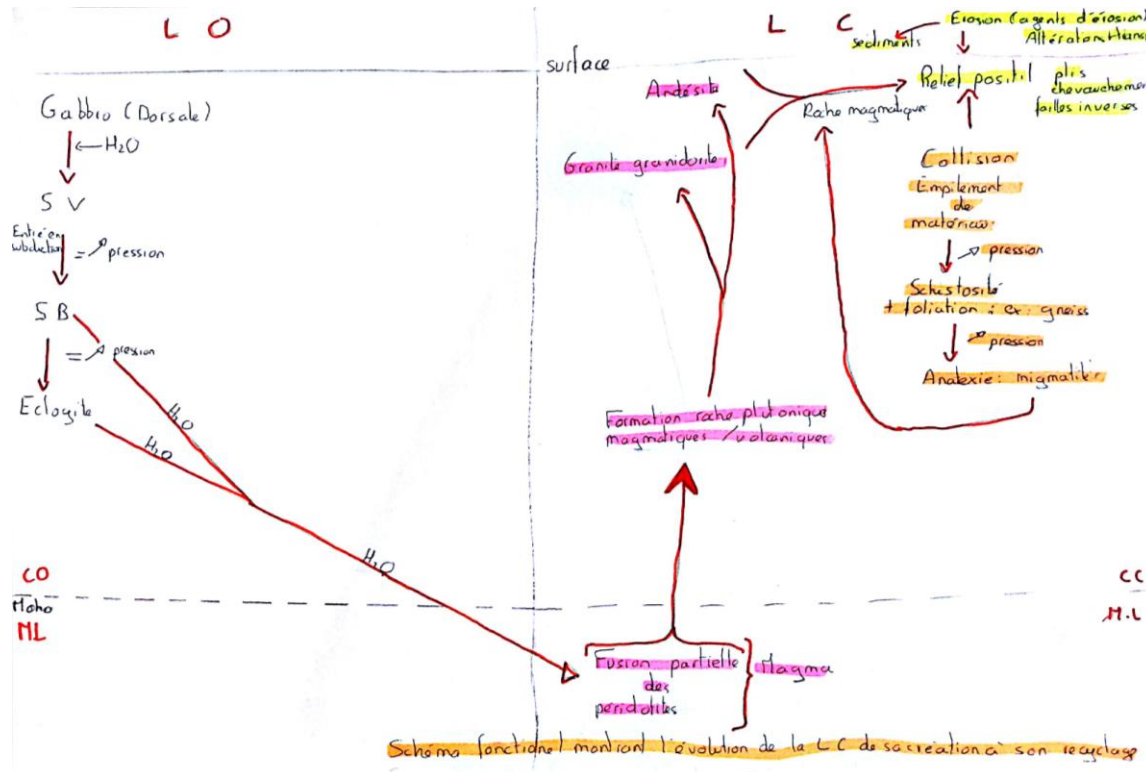 L O
Gabbro (Dorsale)
H₂O
S V
Entrée en
subduction
= ↗ pression
S B
= ↗ pression
Eclogite
H₂O
H₂O
H₂O
CO
Moho
ML
surface
L C
sédiments
Erosion (agents d'érosion)
Altération + trans
Andésite
Roche magmatique
Relief positif
plis
chevauchemen
failles inverses
Granite granidorite
Collision
Empilement
de
matériaux
↗ pression
Schistosité
+ foliation : ex : gneiss
↗ pression
Anatexie : migmatites
Formation roche plutonique
magmatiques / volcaniques
CC
M.L
Fusion partielle
des
péridotites
Magma
Schéma fonctionel montrant l'évolution de la LC de sa création à son recyclage